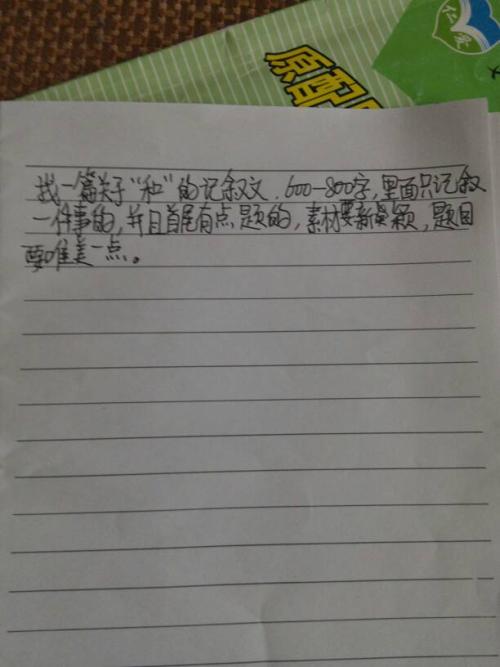 原配
仁爱
找一篇关于“和”的记叙文.600-800字,里面只记叙
一件事的,并且首尾有点题的,素材要新颖,题目
要唯美一点。